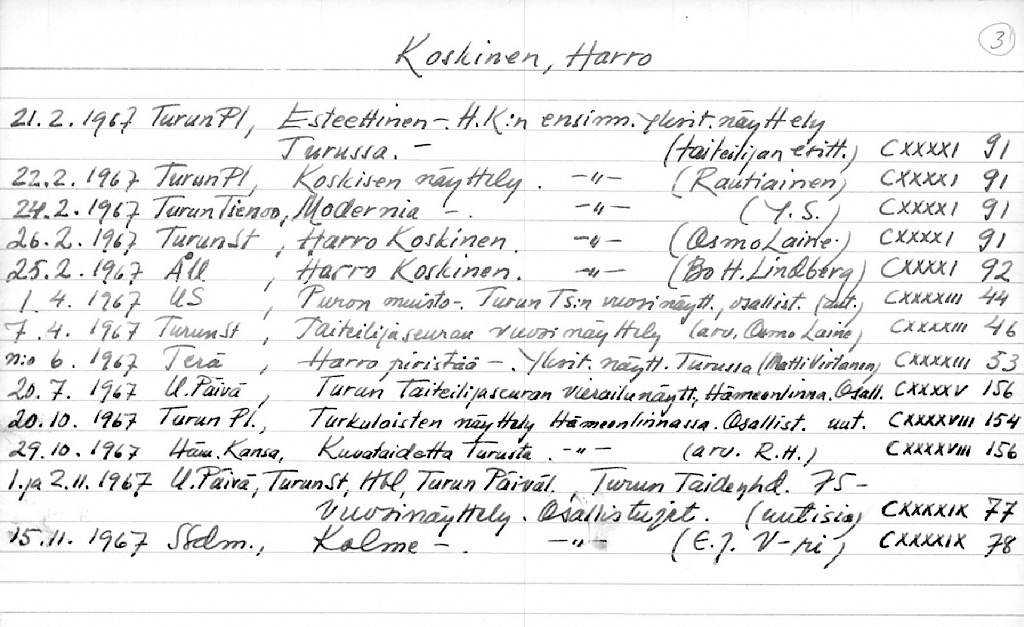 3
Koskinen, Harro
21.2.1967 Turun Pl, Esteettinen -. H.K:n ensimm. yksit. näyttely
Turussa. - (taiteilijan esitt.) CXXXXI 91
22.2.1967 Turun Pl, Koskisen näyttely. -"- (Rautiainen) CXXXXI 91
24.2.1967 Turun Tienoo, Modernia -. -"- (Y.S.) CXXXXI 91
26.2.1967 Turun St, Harro Koskinen. -"- (Osmo Laine.) CXXXXI 91
25.2.1967 ÅU, Harro Koskinen. -"- (Bo H. Lindberg) CXXXXI 92
1.4.1967 US, Puron muisto-. Turun Ts:n vuosinäytt., osallist. (uut.) CXXXXIII 44
7.4.1967 Turun St, Taiteilijaseuran vuosinäyttely (arv. Osmo Laine) CXXXXIII 46
n:o 6. 1967 Terä, Harro piristää -. Yksit. näytt. Turussa (Matti Virtanen) CXXXXIII 53
20.7.1967 U.Päivä, Turun Taiteilijaseuran vierailunäytt., Hämeenlinna. Osall. CXXXXV 156
20.10.1967 Turun Pl., Turkulaisten näyttely Hämeenlinnassa. Osallist. uut. CXXXXVIII 154
29.10.1967 Häm. Kansa, Kuvataidetta Turusta. -"- (arv. R.H.) CXXXXVIII 156
1. ja 2.11.1967 U.Päivä, Turun St, Hbl, Turun Päiväl., Turun Taideyhd. 75-
vuosinäyttely. Osallistujat. (uutisia) CXXXXIX 77
15.11.1967 SSdm., Kolme -. -"- (E.J. V-ri) CXXXXIX 78